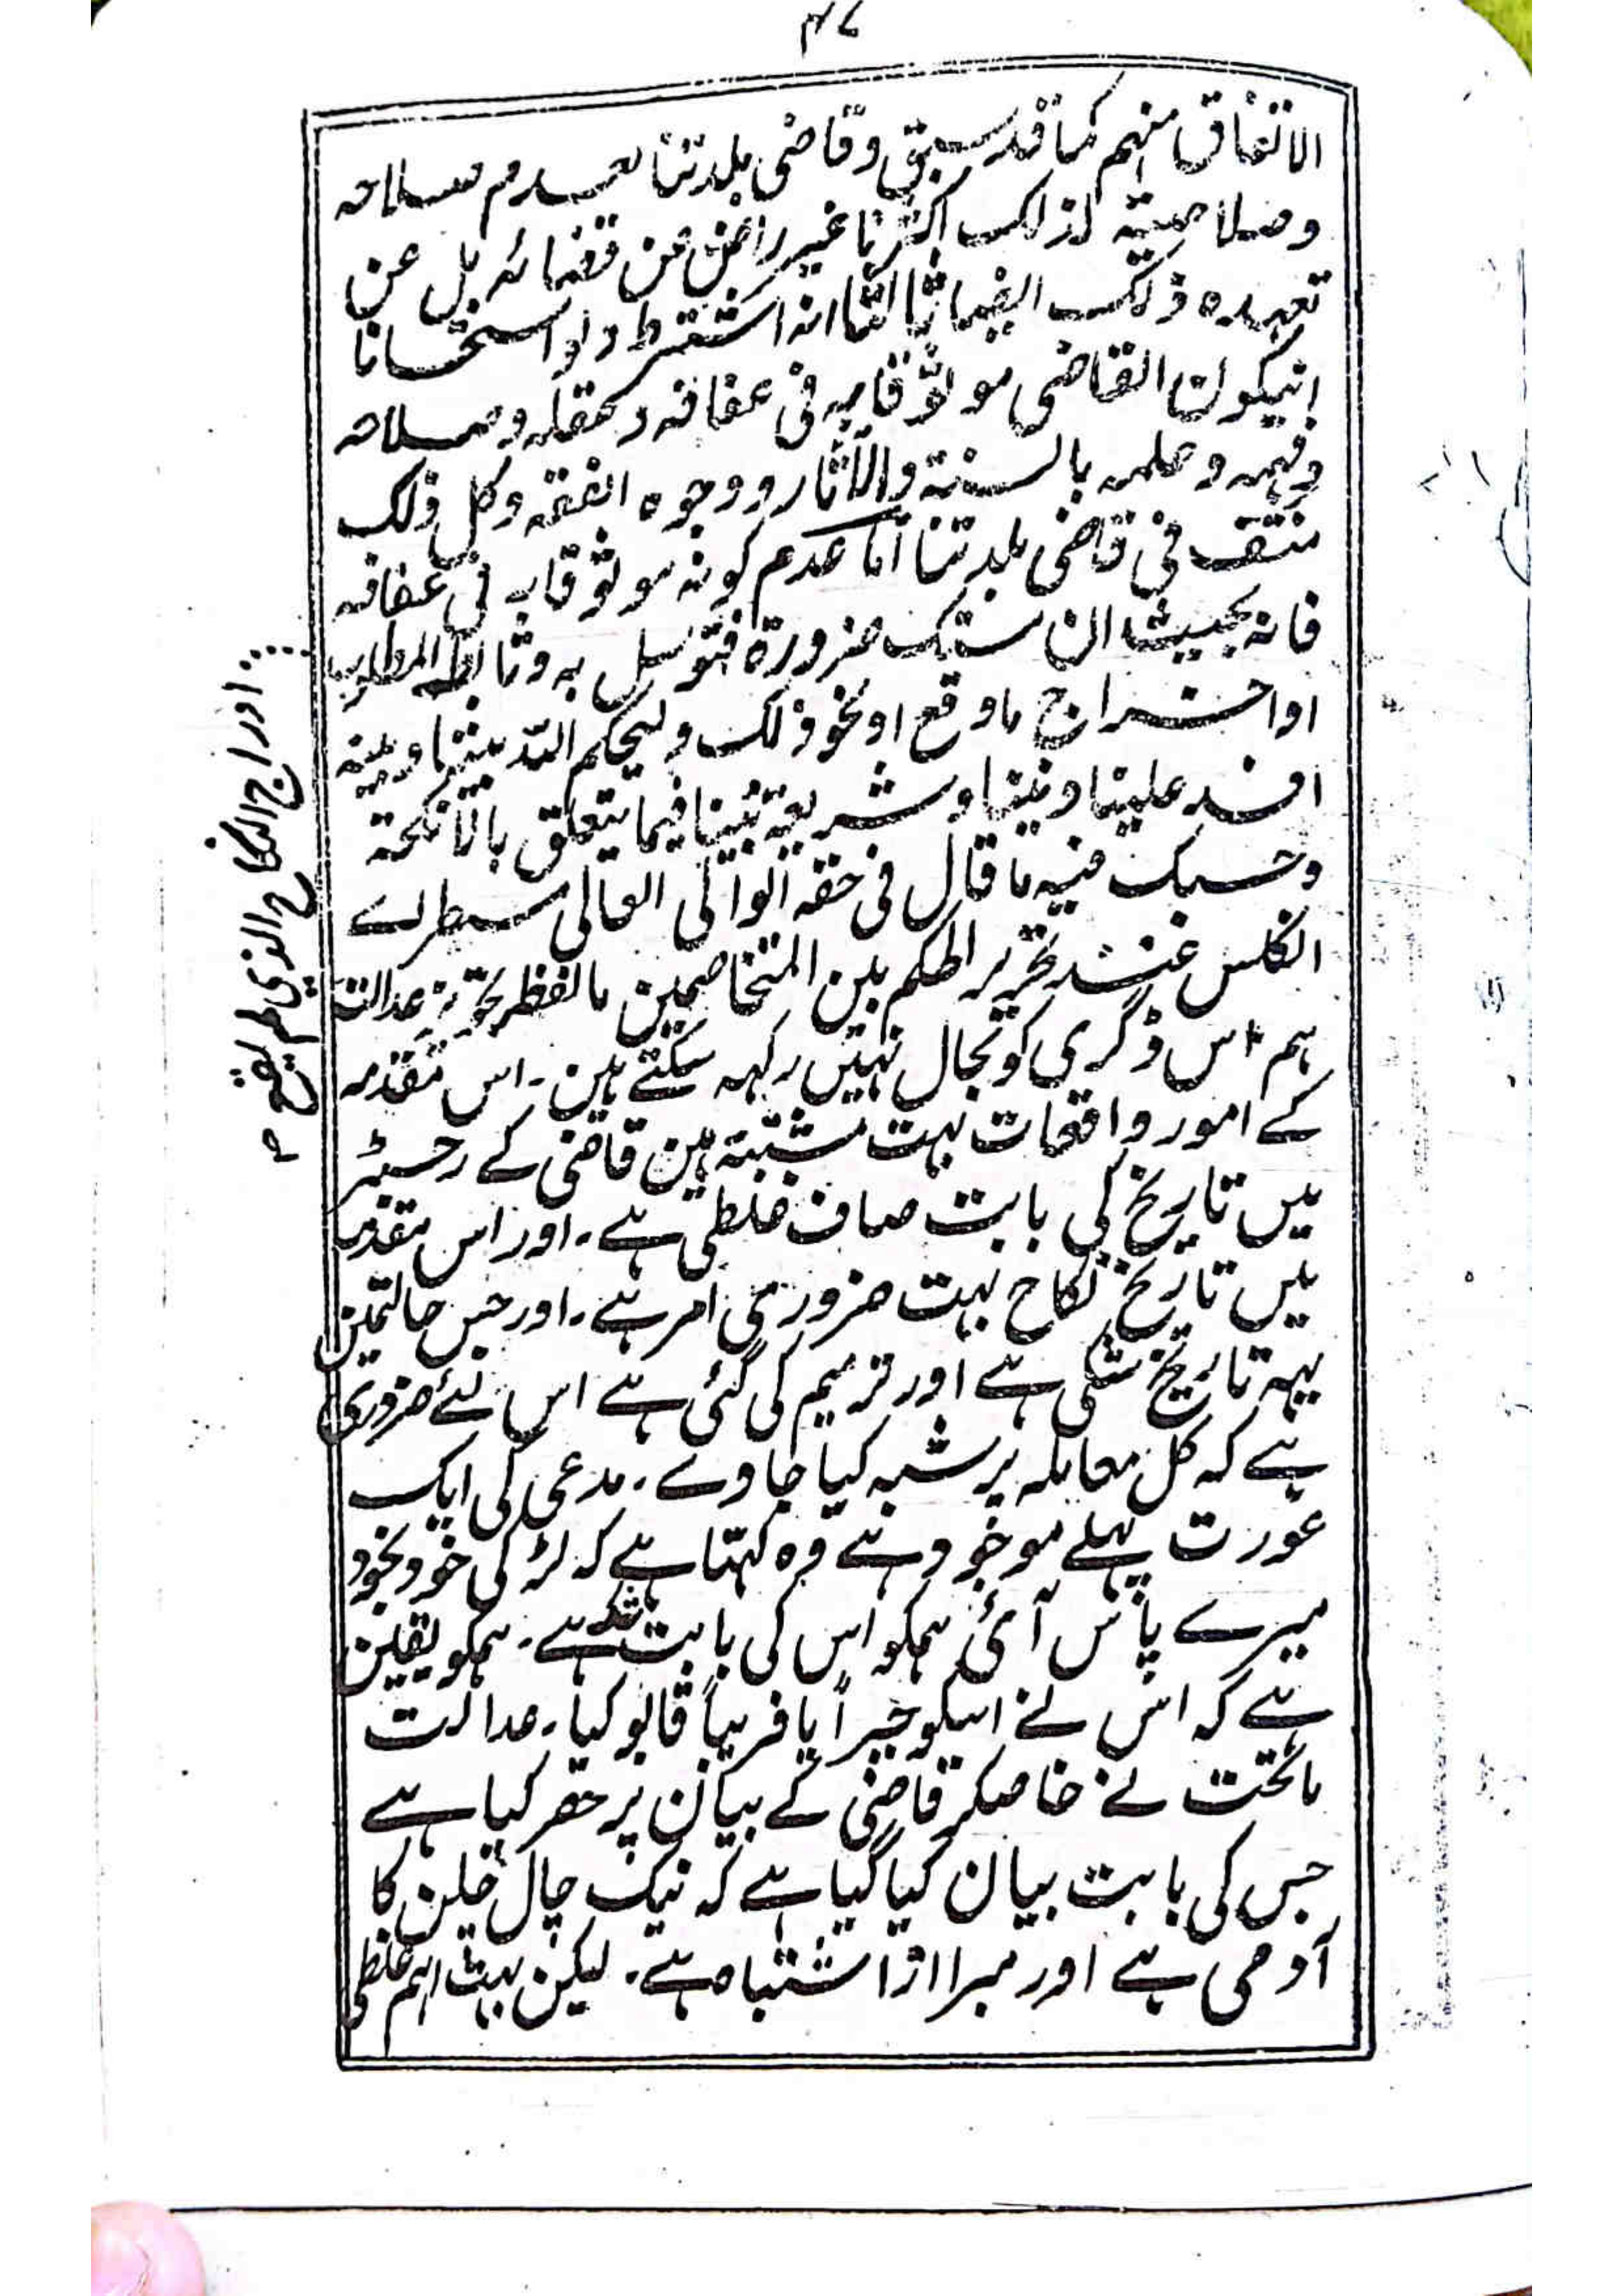 ۴۷
الاتفاق منہم کما قد سبق وقاضی بلدتنا لعدم صلاحہ
وصلاحیتہ لذلک اکثرنا غیر راض عن قضائہ بل عن
تعہدہ ذلک ایضا ثالثا انہ اشترط دلوا ستحسانا
انیکون القاضی موثوقا بہ فی عفافہ وعقلہ وصلاحہ
وفہمہ وعلمہ بالسنۃ والآثار ووجوہ الفقہ وکل ذلک
منتف فی قاضی بلدتنا اما عدم کونہ موثوقا بہ فی عفافہ
فانہ بحیث ان ستک ضرورۃ فتوسل بہ المطلوب
او اخراج ماوقع او نحو ذلک ولیحکم اللہ بیننا وبینہ
افسد علینا دیننا وشریعۃ نبینا فیما یتعلق بالانکحۃ
وحسبک فیہ ما قال فی حقہ الوالی العالی مسطر اے
انکلس عند تحریر الحکم بین المتخاصمین بالفظ تجویز عدالت
ہم اس ڈگری کو بحال نہیں رکھہ سکتے ہین۔ اس مقدمہ
کے امور واقعات بہت مشتبہ ہین قاضی کے رجسٹر
میں تاریخ کی بابت صاف غلطی ہے۔ اور اس مقدمہ
میں تاریخ نکاح بہت ضروری امر ہے۔ اور جس حالتمین
یہہ تاریخ شکی ہے اور ترمیم کی گئی ہے اس لئے ضروری
ہے کہ کل معاملہ پر شبہ کیا جاوے۔ مدعی کی ایک
عورت پہلے موجود ہے وہ کہتا ہے کہ لڑکی خود بخود
میرے پاس آئی ہمکو اس کی بابت شک ہے۔ ہمکو یقین
ہے کہ اس نے اسکو جبراً یا فریباً قابو کیا۔ عدالت
ماتحت نے خاصکر قاضی کے بیان پر حصر کیا ہے
جس کی بابت بیان کیا گیا ہے کہ نیک چال چلن کا
آدمی ہے اور مبرا از اشتباہ ہے۔ لیکن بہت اہم غلطی
ادراج النکاح الذی لم یقع